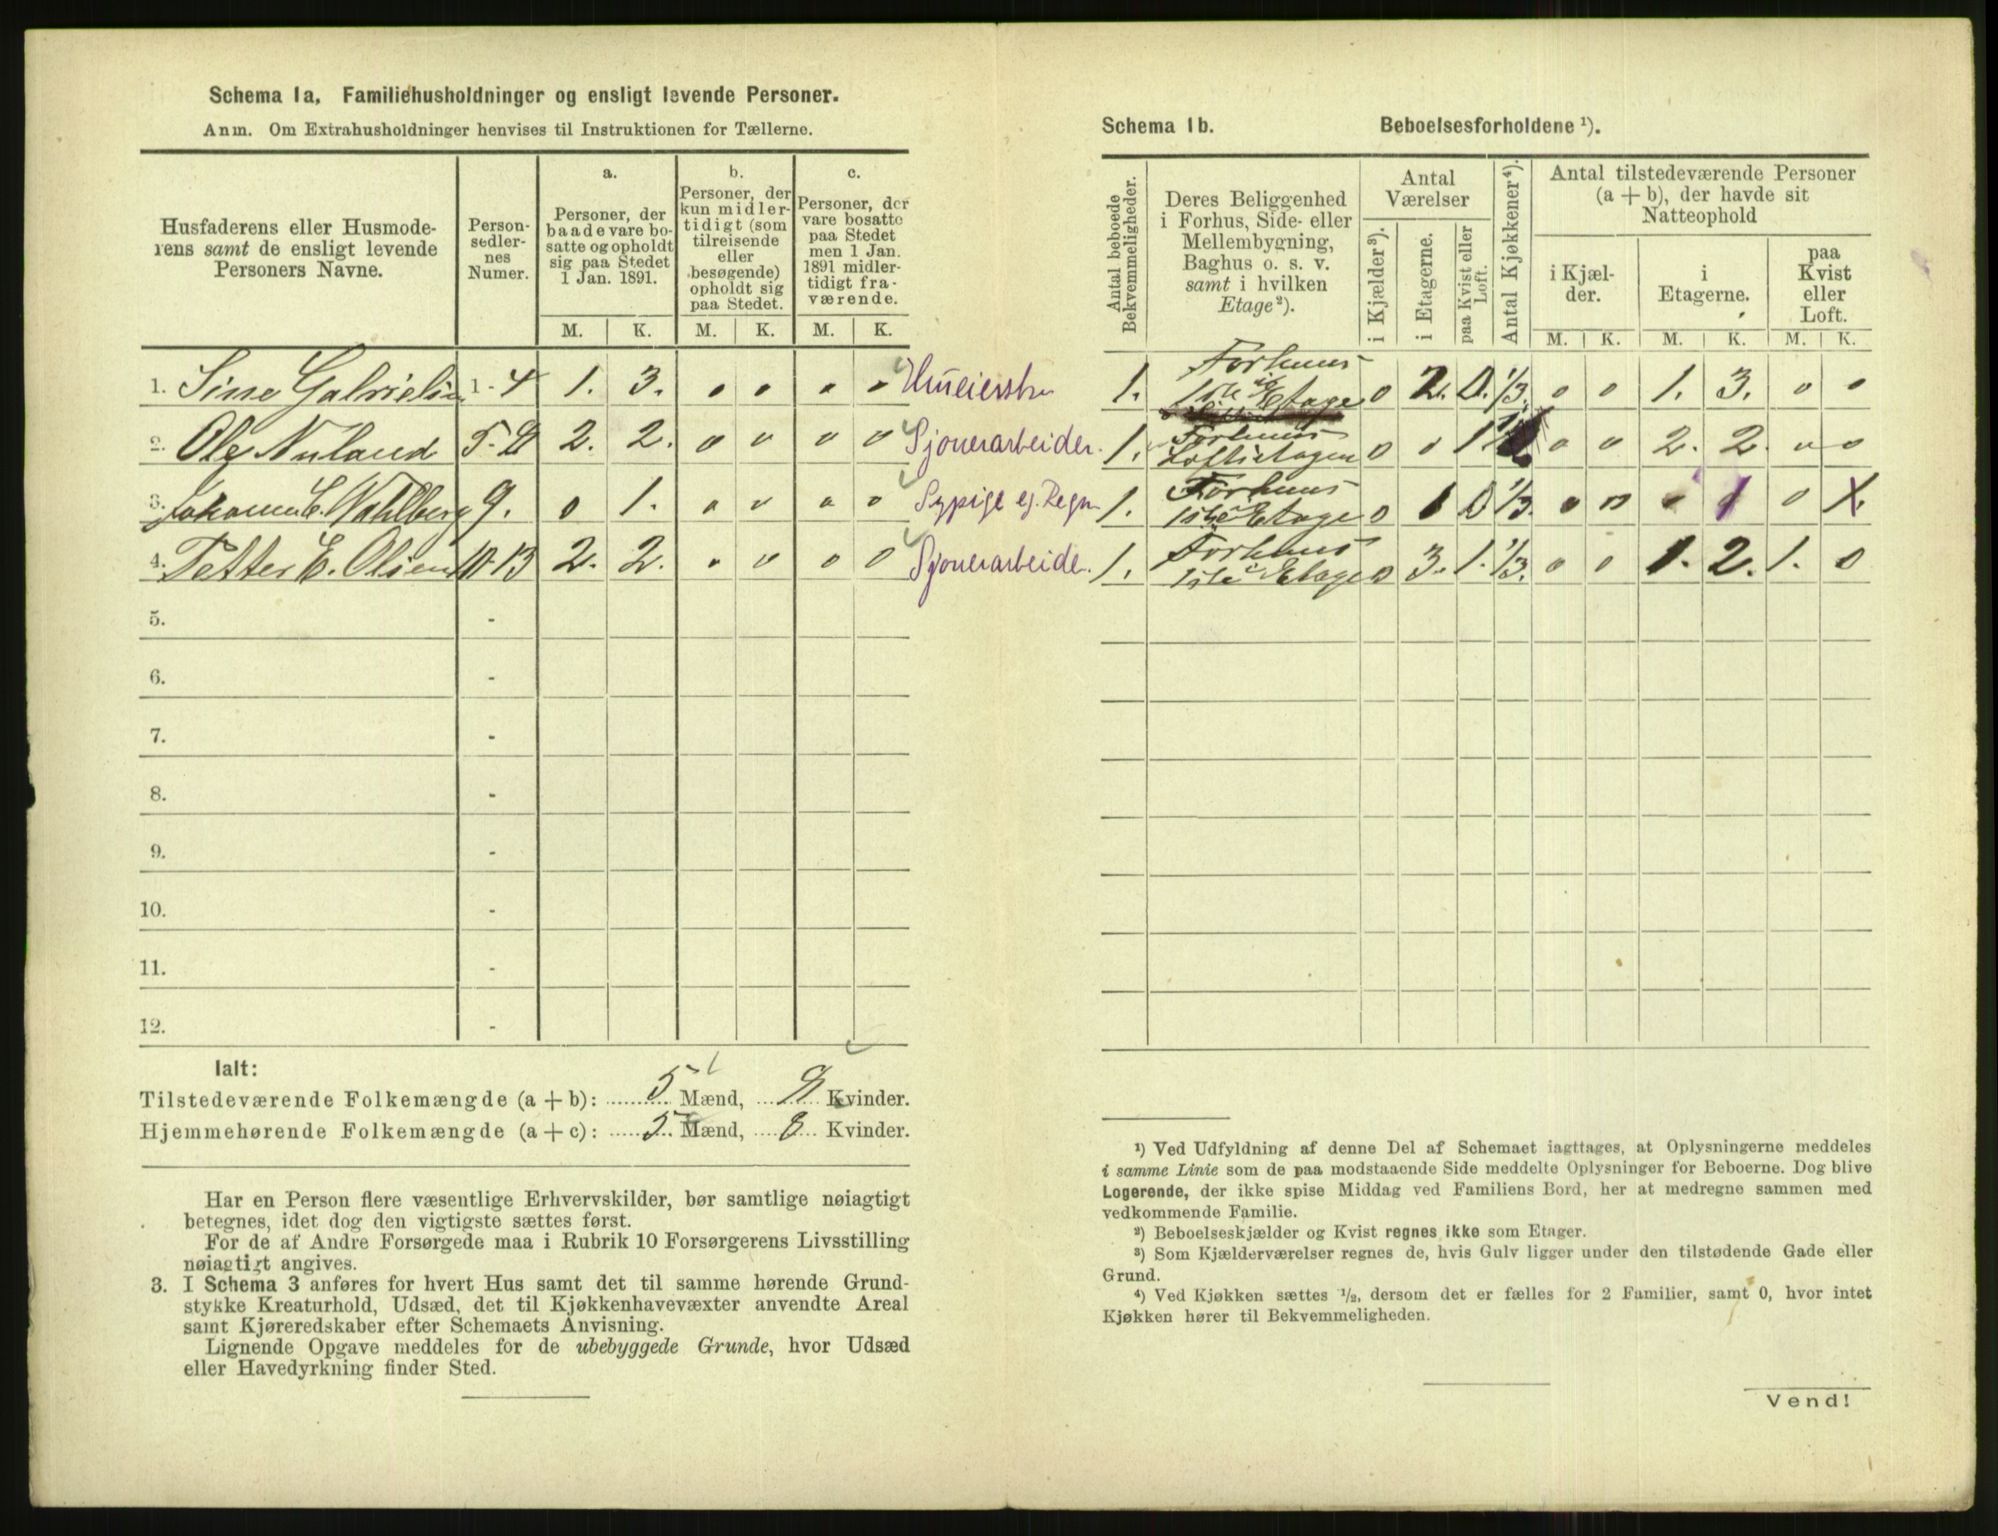 Schema 1a. Familiehusholdninger og ensligt levende Personer.
Anm. Om Extrahusholdninger henvises til Instruktionen for Tællerne.
Husfaderens eller Husmode-
rens samt de ensligt levende
Personers Navne.
Person-
sedler-
nes
Numer.
a.
Personer, der
baade vare bo-
satte og opholdt
sig paa Stedet
1 Jan. 1891.
b.
Personer, der
kun midler-
tidigt (som
tilreisende
eller
besøgende)
opholdt sig
paa Stedet.
c.
Personer, der
vare bosatte
paa Stedet
men 1 Jan.
1891 midler-
tidigt fra-
værende.
M. K. M. K. M. K.
1. Sine Gabrielsen 1 - 4 1. 3. 0 0 0 0
2. Ole Nuland 5 - 8 2. 2. 0 0 0 0 Sjouerarbeider.
3. Johanne E. Wahlberg 9. 0 1. 0 0 0 0 Sypige eg. Regn.
4. Petter E. Olsen 10 - 13 2. 2. 0 0 0 0 Sjouerarbeide.
5. -
6. -
7. -
8. -
9. -
10. -
11. -
12. -
Ialt:
Tilstedeværende Folkemængde (a + b): 5 Mænd, 8 Kvinder.
Hjemmehørende Folkemængde (a + c): 5 Mænd, 8 Kvinder.
Har en Person flere væsentlige Erhvervskilder, bør samtlige nøiagtigt
betegnes, idet dog den vigtigste sættes først.
For de af Andre Forsørgede maa i Rubrik 10 Forsørgerens Livsstilling
nøiagtigt angives.
3. I Schema 3 anføres for hvert Hus samt det til samme hørende Grund-
stykke Kreaturhold, Udsæd, det til Kjøkkenhavevæxter anvendte Areal
samt Kjøreredskaber efter Schemaets Anvisning.
Lignende Opgave meddeles for de ubebyggede Grunde, hvor Udsæd
eller Havedyrkning finder Sted.
Schema 1b. Beboelsesforholdene ¹).
Antal beboede
Bekvemmeligheder.
Deres Beliggenhed
i Forhus, Side- eller
Mellembygning,
Baghus o. s. v.
samt i hvilken
Etage²).
Antal
Værelser
i Kjælder³).
i Etagerne.
paa Kvist eller
Loft.
Antal Kjøkkener⁴).
Antal tilstedeværende Personer
(a + b), der havde sit
Natteophold
i Kjæl-
der.
i
Etagerne.
paa
Kvist
eller
Loft.
M. K. M. K. M. K.
1. Forhuus
1ste Etage 0 2. 0. 1/3. 0 0 1. 3. 0 0
1. Forhuus
Loftietagen 0 0 1 0 0 2. 2. 0 0
1. Forhuus
1ste Etage 0 1 0 1/3. 0 0 1 0
1. Forhuus
1ste Etage 0 3. 1. 1/3. 0 0 1. 2. 1. 0
¹) Ved Udfyldning af denne Del af Schemaet iagttages, at Oplysningerne meddeles
i samme Linie som de paa modstaaende Side meddelte Oplysninger for Beboerne. Dog blive
Logerende, der ikke spise Middag ved Familiens Bord, her at medregne sammen med
vedkommende Familie.
²) Beboelseskjælder og Kvist regnes ikke som Etager.
³) Som Kjælderværelser regnes de, hvis Gulv ligger under den tilstødende Gade eller
Grund.
⁴) Ved Kjøkken sættes ½, dersom det er fælles for 2 Familier, samt 0, hvor intet
Kjøkken hører til Bekvemmeligheden.
Vend!